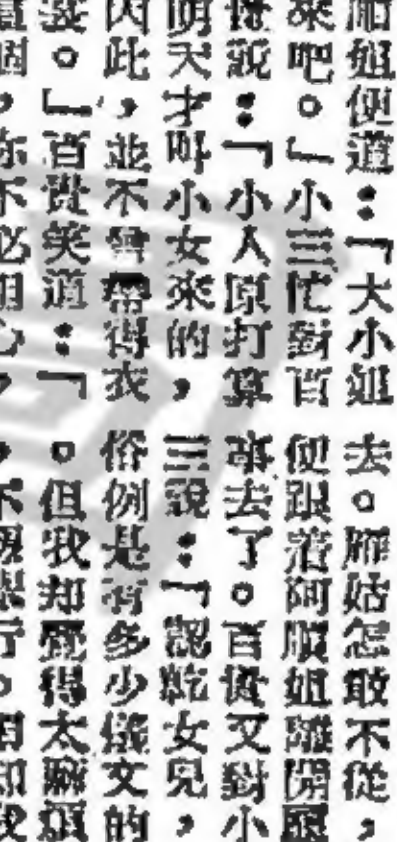 順姐便道：「大小姐
來吧。」小三忙對百
貴說：「小人原打算
明天才叫小女來的，
因此，並不曾帶得衣
裳。」百貴笑道：「
這個，你不必用心，
去。師姑怎敢不從，
便跟着阿順姐離開廳
事去了。百貴又對小
三說：「認乾女兒，
俗例是有多少儀文的
。但我却覺得太麻煩